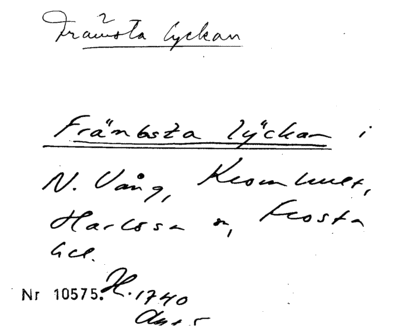 Främsta lyckan
Främbsta lyckan i
N. Vång, Kromhult,
Harlösa sn, Frosta
hd.
Nr 10575. H. 1740